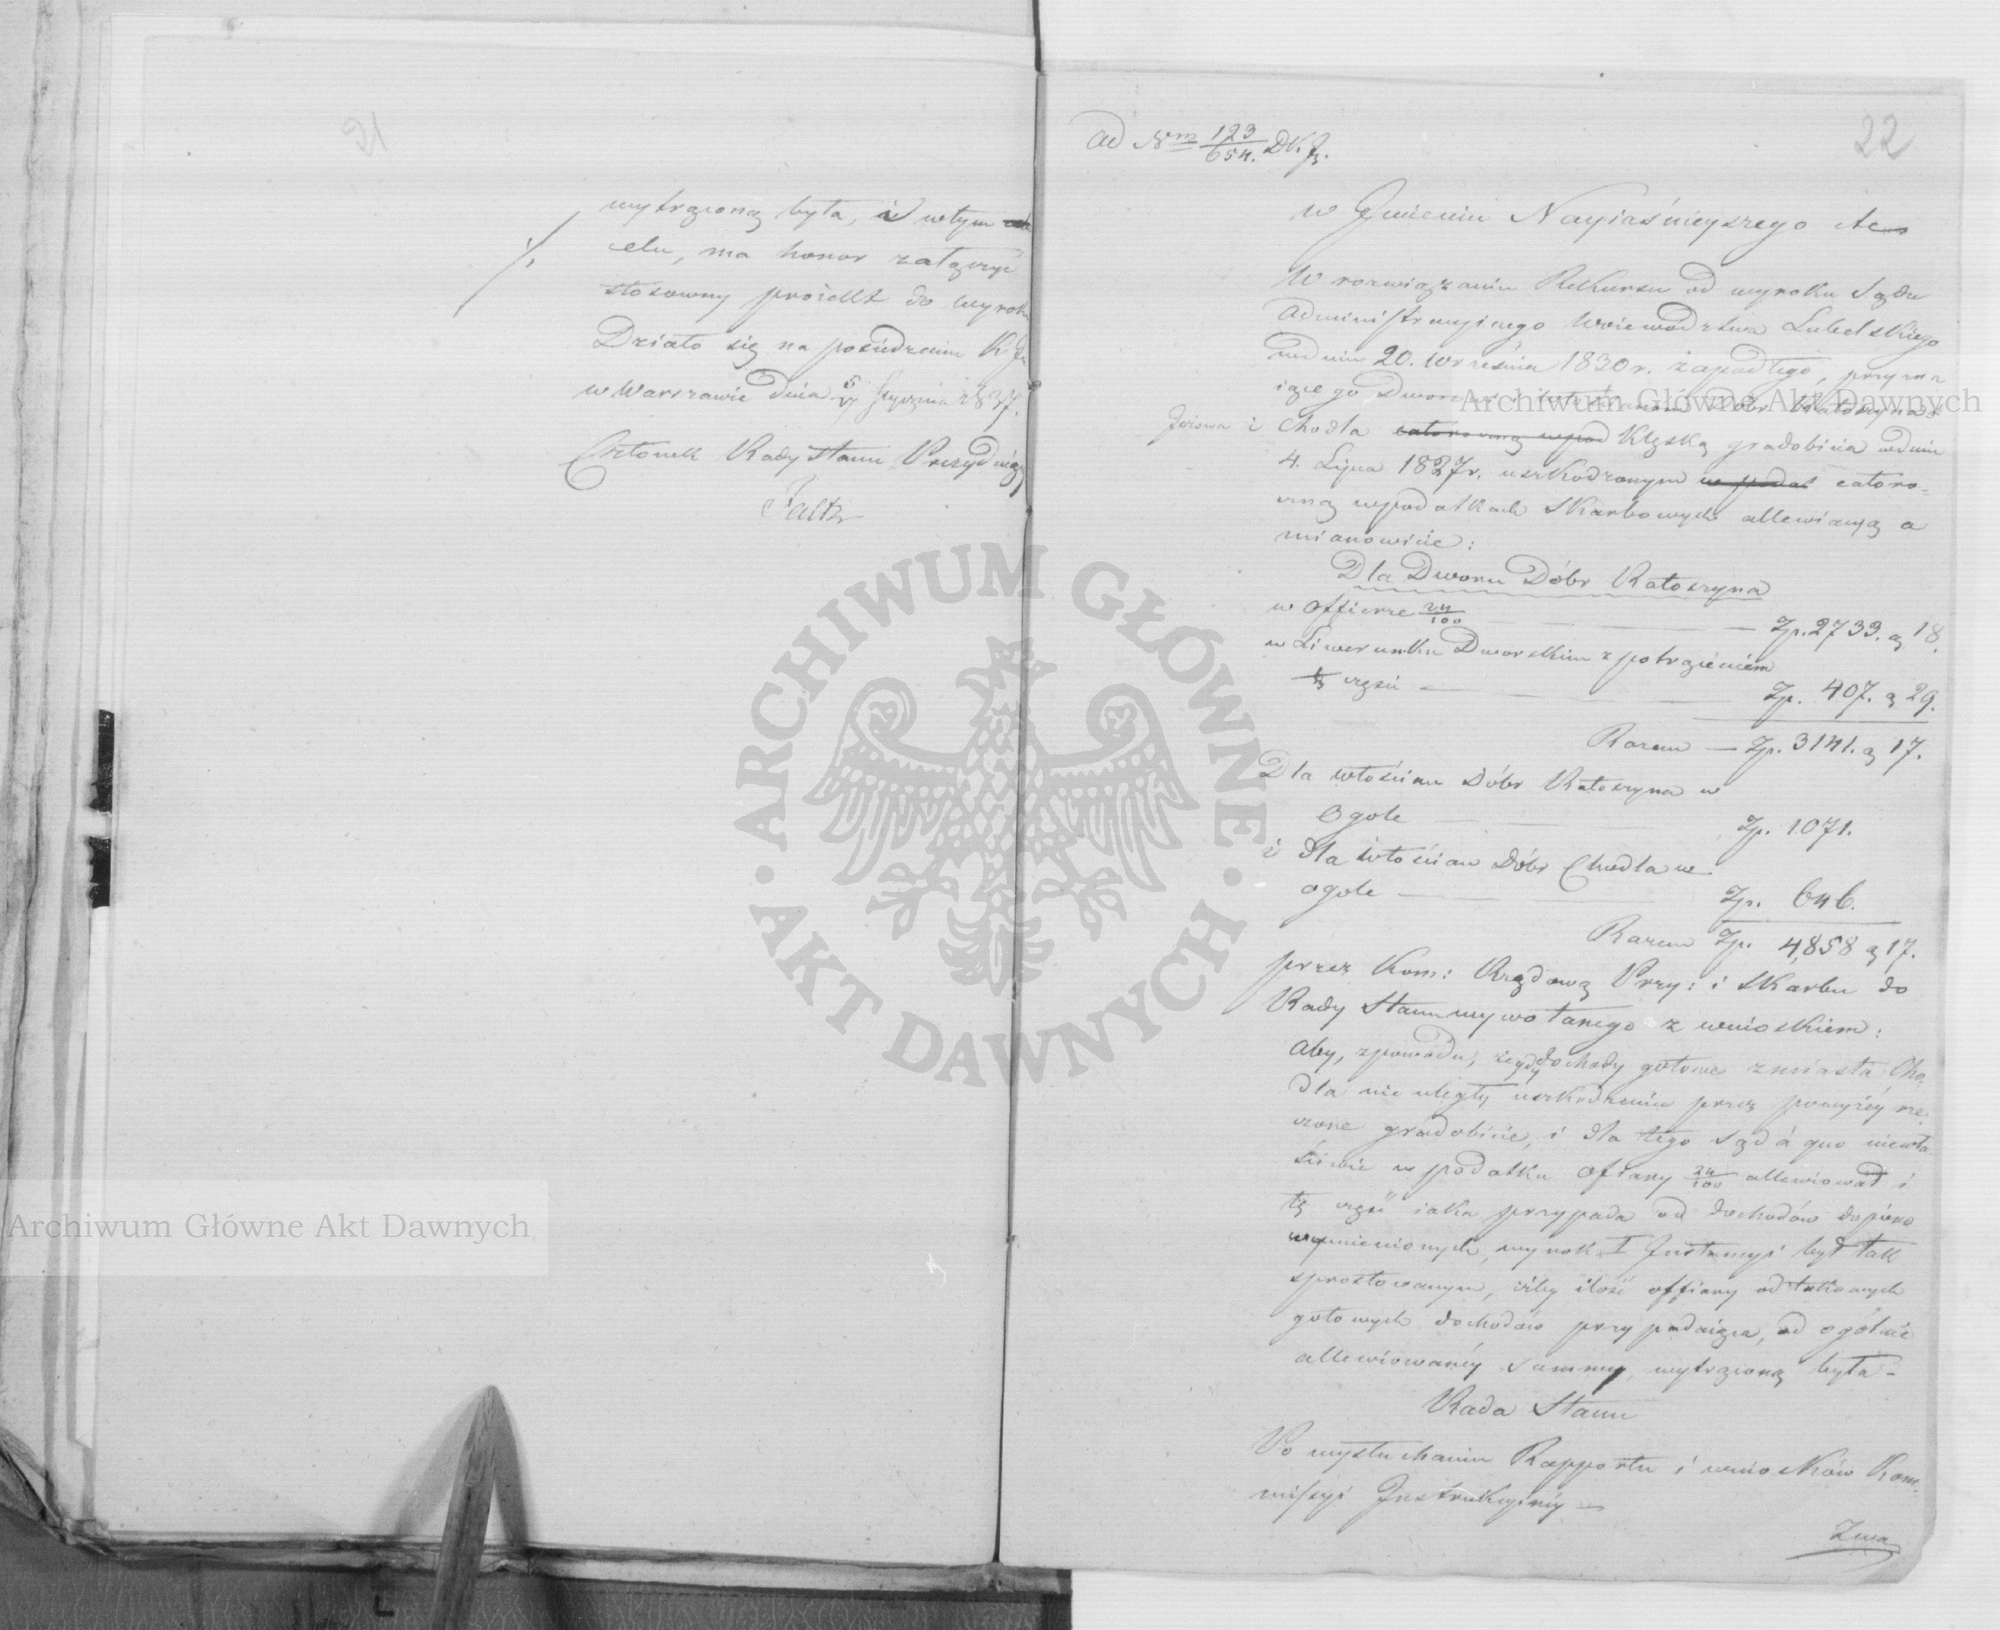 wytrąconą była, i w tym
celu, ma honor załączyć
stosowny proiekt do wyroku
Działo się na posiedzeniu K
w Warszawie dnia Stycznia 1837.
Członek Rady Stanu Prezyduiący
22
Ad Nrm 123/654. D.K.J.
w Jmieniu Nayiaśnieyszego etc
W rozwiązaniu Rekursu od wyroku Sądu
Administracyinego Woiewództwa Lubelskiego
w dniu 20. Września 1830 r. zapadłego, przyzna
iącego Dworowi i Włościanom Dóbr Ratoszyna
i Chodla klęską gradobicia w dniu
4. Lipca 1827 r. uszkodzonym całoro-
czną w podatkach Skarbowych allewiacyą a
mianowicie:
Dla Dworu Dóbr Ratoszyna
w offierze 24/100 Zp. 2733. g 18.
w Liwerunku Dworskim z potrąceniem
części Zp. 407. g 29.
Razem Zp. 3141. g 17.
Dla włościan Dóbr Ratoszyna w
Ogole Zp. 1071.
i dla włościan Dóbr Chodla w
ogole Zp. 646.
Razem Zp. 4,858 g 17.
przez Kom: Rządową Przy: i Skarbu do
Rady Stanu wywołanego z wnioskiem:
Aby, z powodu, że gdy dochody gotowe z miasta Cho-
dla nie uległy uszkodzeniu przez powyżéy rze
czone gradobicie, i dla tego Sąd à quo niewła-
ściwie w podatku Ofiary 24/100 allewiował i
tę część iaka przypada od dochodów dopiero
wymienionych, wyrok I Jnstancyi był tak
sprostowanym, iżby ilość offiary od takowych
gotowych dochodów przypadaiąca, od ogólnie
allewiowanéy Summy, wytrąconą była-
Rada Stanu
Po wysłuchaniu Rapportu i wniosków Kom-
missyi Jnstrukcyinéy
Zwa
Archiwum Główne Akt Dawnych
Archiwum Główne Akt Dawnych
ARCHIWUM GŁÓWNE
AKT DAWNYCH